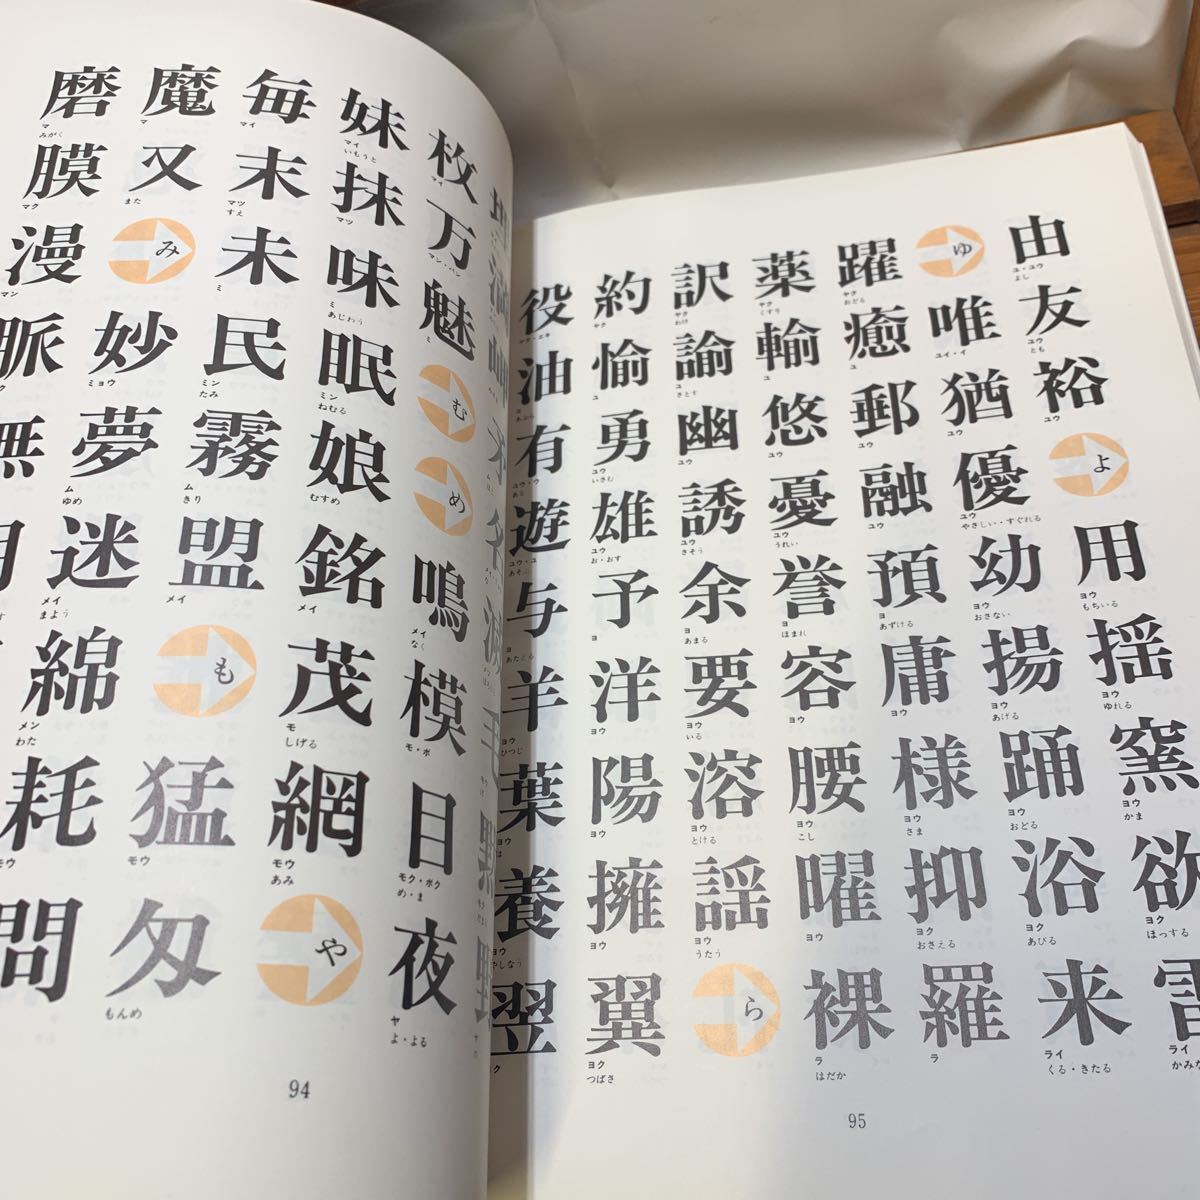 磨 魔 毎 妹 枚
マ みがく マ マイ マイ いもうと マイ
膜 又 末 抹 万
マク また マツ すえ マツ マン・バン
漫 み 未 味 魅
マン ミ ミ あじわう ミ
脈 妙 民 眠 む
ミョウ ミン たみ ミン ねむる
無 夢 霧 娘 め
ム ゆめ ム きり むすめ
明 迷 盟 銘 鳴
メイ まよう メイ メイ メイ なく
綿 も 茂 模
メン わた モ しげる モ・ボ
耗 猛 網 目
モウ モウ モウ あみ モク・ボク め・ま
問 匁 や 夜
もんめ ヤ よ・よる
94
役 約 訳 薬 躍 ゆ 由
ヤク・エキ ヤク ヤク わけ ヤク くすり ヤク おどる ユ・ユウ よし
油 愉 諭 輸 癒 唯 友
ユ あぶら ユ ユ さとす ユ ユ ユイ・イ ユウ とも
有 勇 幽 悠 郵 猶 裕
ユウ・ウ ある ユウ いさむ ユウ ユウ ユウ ユウ ユウ
遊 雄 誘 憂 融 優 よ
ユウ・ユ あそ ユウ お・おす ユウ さそう ユウ うれい ユウ ユウ やさしい・すぐれる
与 予 余 誉 預 幼 用
ヨ あたえる ヨ ヨ あまる ヨ ほまれ ヨ あずける ヨウ おさない ヨウ もちいる
羊 洋 要 容 庸 揚 揺
ヨウ ひつじ ヨウ ヨウ いる ヨウ ヨウ ヨウ あげる ヨウ ゆれる
葉 陽 溶 腰 様 踊 窯
ヨウ は ヨウ ヨウ とける ヨウ こし ヨウ さま ヨウ おどる ヨウ かま
養 擁 謡 曜 抑 浴 欲
ヨウ やしなう ヨウ ヨウ うたう ヨウ ヨク おさえる ヨク あびる ヨク ほっする
翌 翼 ら 裸 羅 来
ヨク ヨク つばさ ラ はだか ラ ライ くる・きたる ライ
95